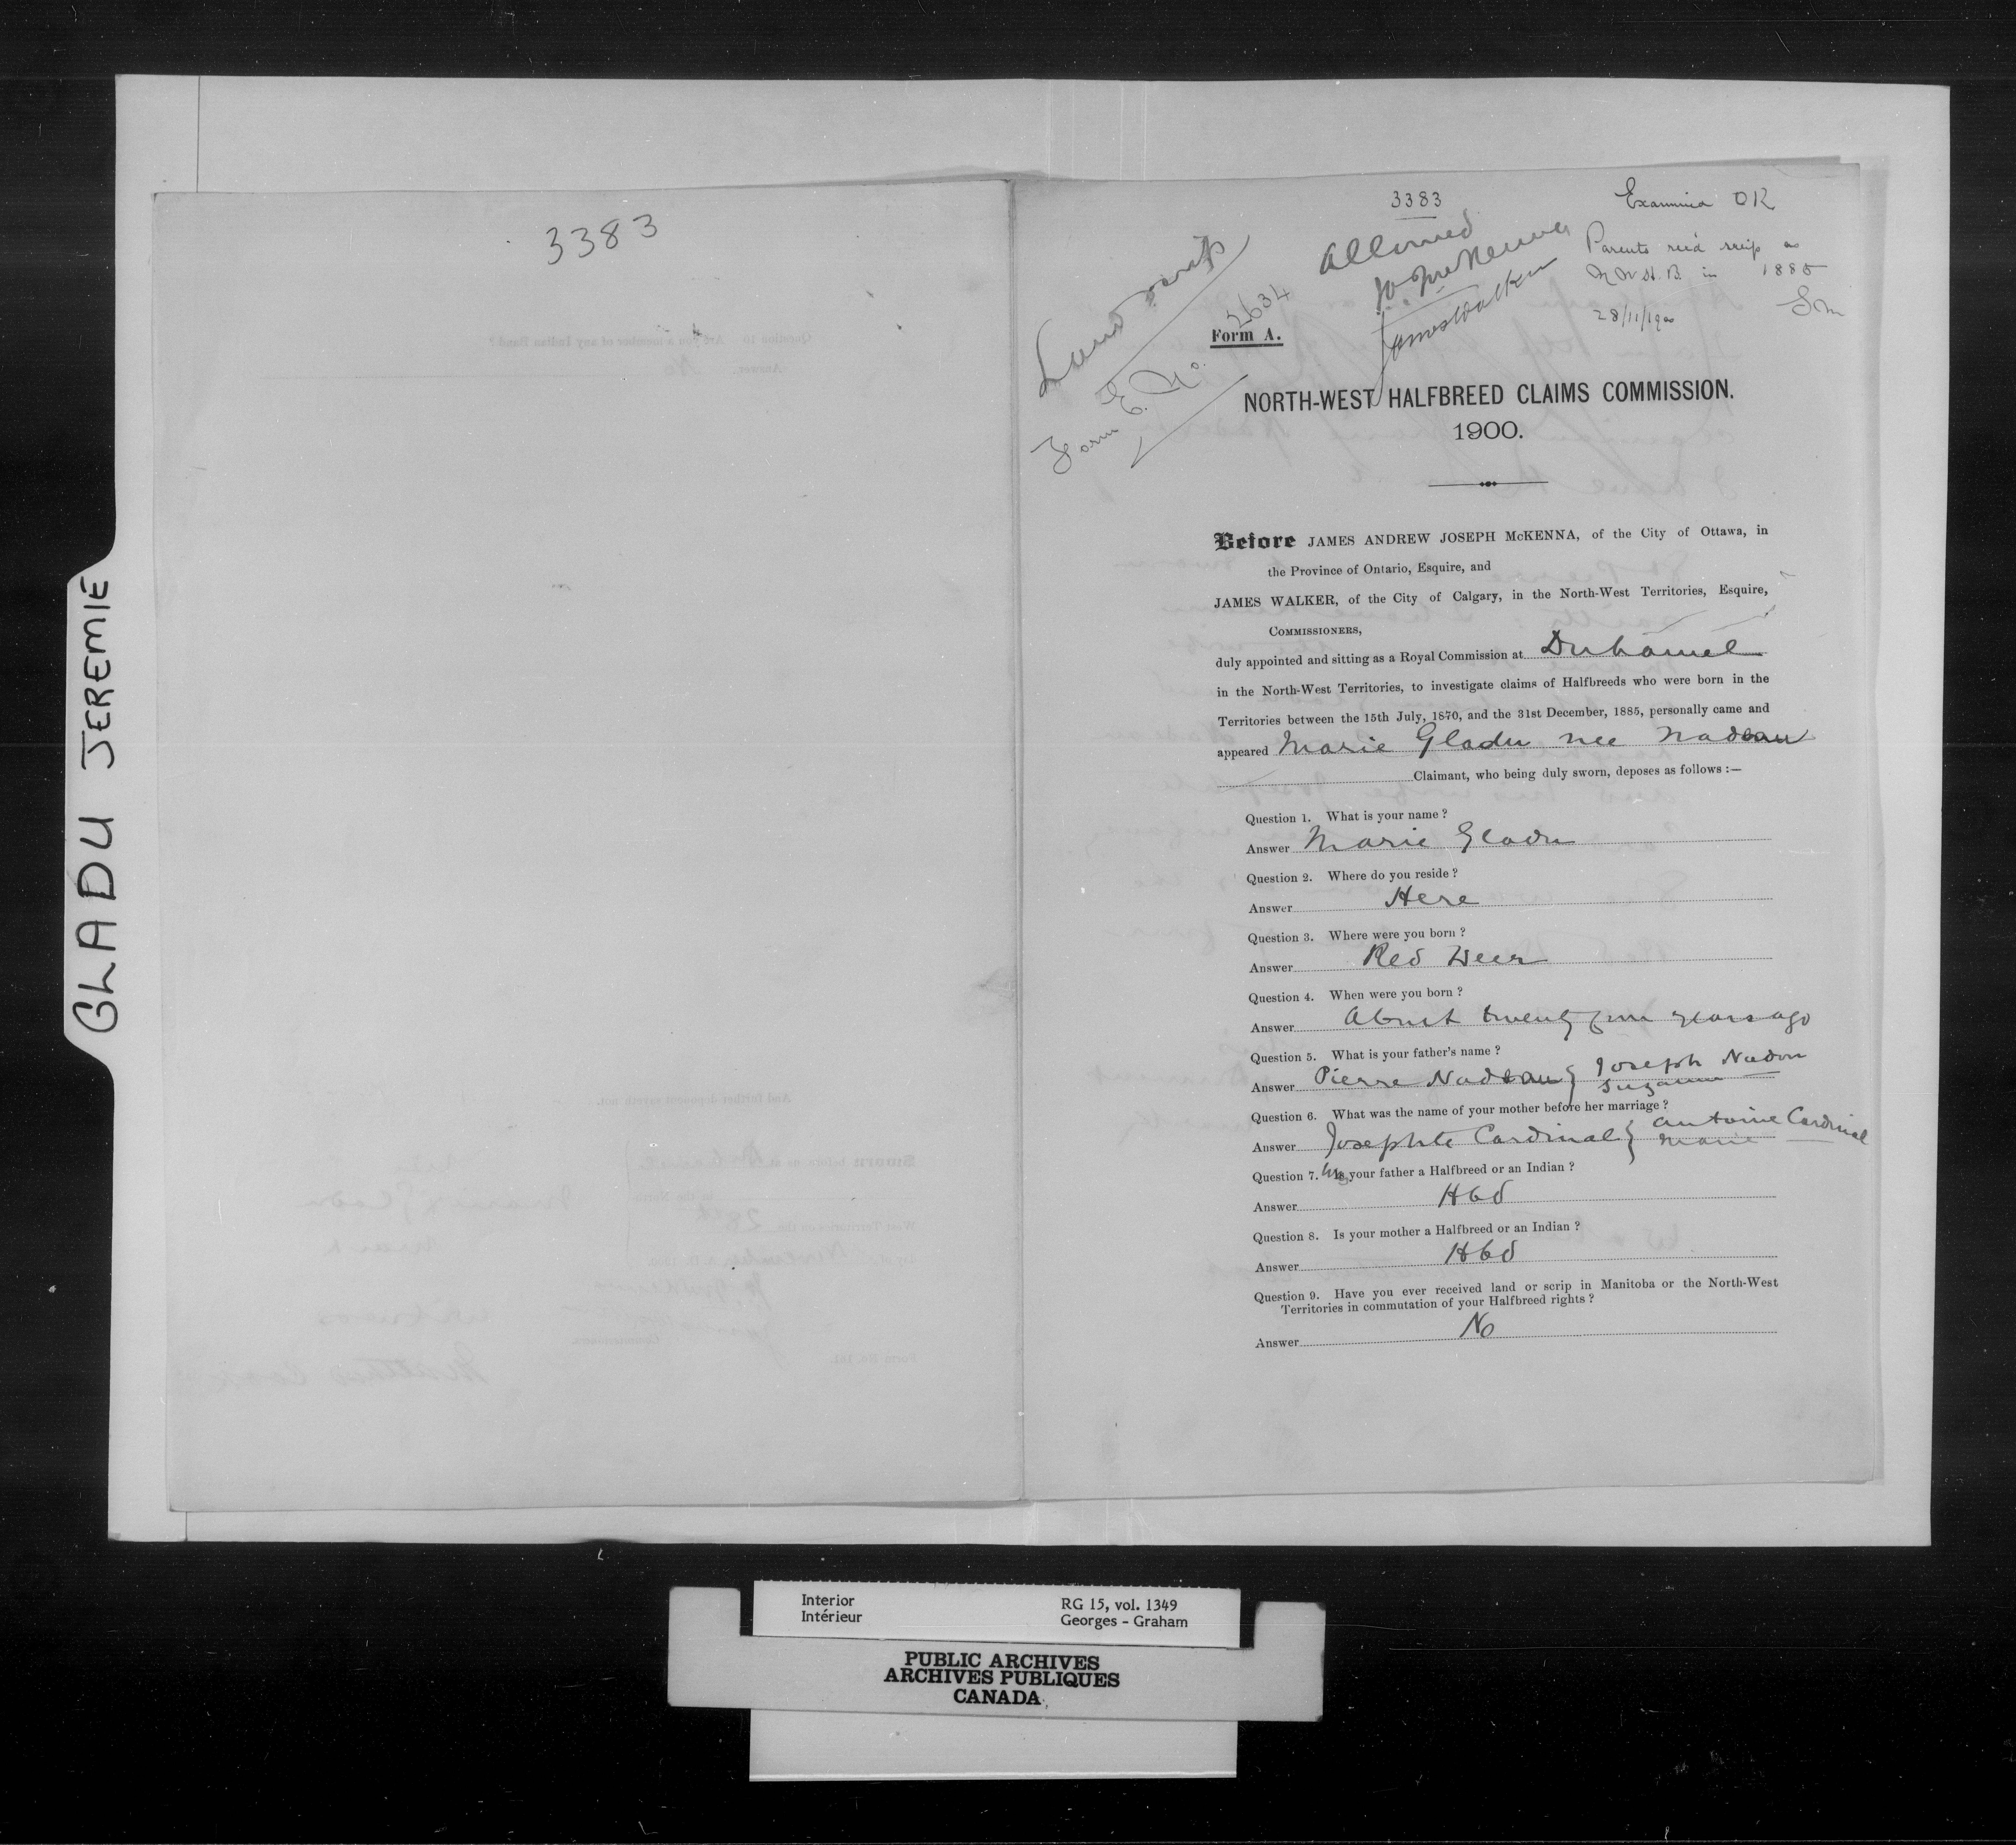 GLADU JEREMIE
3383
3383
Examined OK
Land scrip
Allowed
JAJ McKenna
James Walker
Parents rec'd scrip as
N W H. B. in 1885
28/11/1900
Form E. No. 2634
Form A.
NORTH-WEST HALFBREED CLAIMS COMMISSION.
1900.
Before JAMES ANDREW JOSEPH McKENNA, of the City of Ottawa, in
the Province of Ontario, Esquire, and
JAMES WALKER, of the City of Calgary, in the North-West Territories, Esquire,
COMMISSIONERS,
duly appointed and sitting as a Royal Commission at Duhamel
in the North-West Territories, to investigate claims of Halfbreeds who were born in the
Territories between the 15th July, 1870, and the 31st December, 1885, personally came and
appeared Marie Gladu nee Nadeau
Claimant, who being duly sworn, deposes as follows :—
Question 1. What is your name ?
Answer Marie Gladu
Question 2. Where do you reside ?
Answer Here
Question 3. Where were you born ?
Answer Red Deer
Question 4. When were you born ?
Answer About twenty years ago
Question 5. What is your father's name ?
Answer Pierre Nadeau } Joseph Nadon
Suzanne
Question 6. What was the name of your mother before her marriage ?
Answer Josephte Cardinal } Antoine Cardinal
Marie
Question 7. Is your father a Halfbreed or an Indian ?
Answer Hbd
Question 8. Is your mother a Halfbreed or an Indian ?
Answer Hbd
Question 9. Have you ever received land or scrip in Manitoba or the North-West
Territories in commutation of your Halfbreed rights ?
Answer No
Interior
Intérieur
RG 15, vol. 1349
Georges - Graham
PUBLIC ARCHIVES
ARCHIVES PUBLIQUES
CANADA